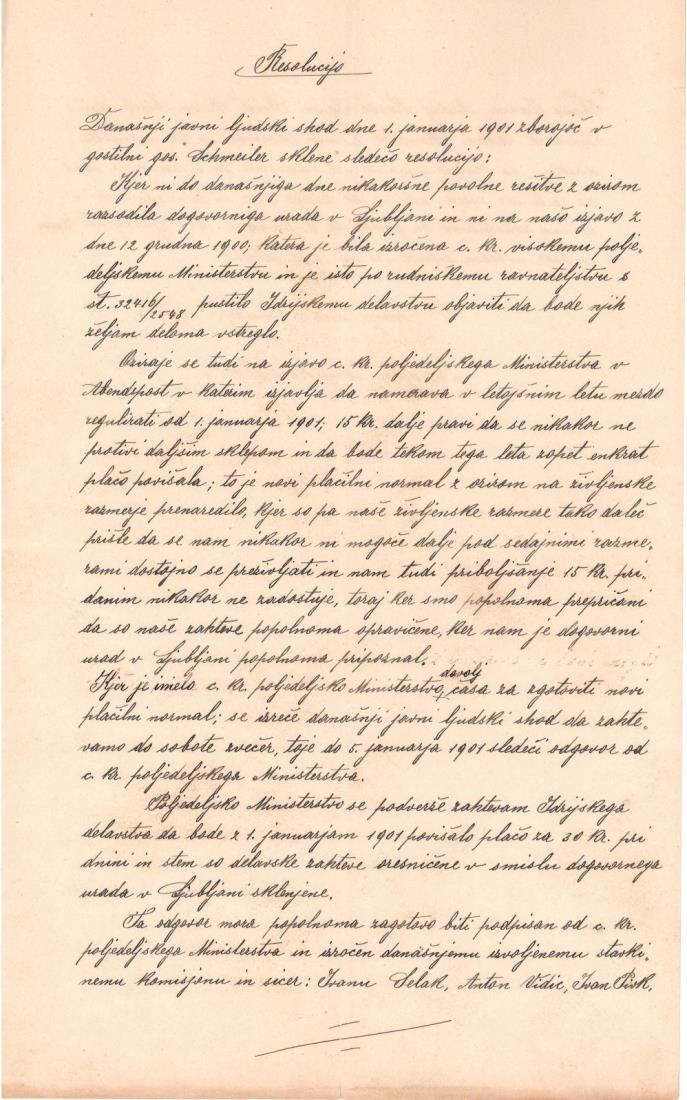 Resolucijo
Današnji javni ljudski shod dne 1. januarja 1901 zborojoč v
gostilni gos. Schmeiler sklene sledečo resolucijo:
Kjer ni do današnjiga dne nikakoršne povolne resitve z ozirom
razsodila dogovorniga urada v Ljubljani in ni na našo izjavo z
dne 12 grudna 1900; katera je bila izročena c. kr. visokemu polje-
deljskemu Ministerstvu in je isto po rudniskemu ravnateljstvu s
št. 32416/2548 pustilo Idrijskemu delavstvu objaviti da bode njih
željam deloma vstreglo.
Oziraje se tudi na izjavo c. kr. poljedeljskega Ministerstva v
Abendspost v katerim izjavlja da namerava v letojšnim letu mezdo
regulirati od 1. januarja 1901; 15 kr. dalje pravi da se nikakor ne
protivi daljšim sklepom in da bode tekom tega leta zopet enkrat
plačo povišala; to je novi plačilni normal z ozirom na življenske
razmerje prenaredilo, kjer so pa naše življenske razmere tako daleč
prišle da se nam nikakor ni mogoče dalje pod sedajnimi razme-
rami dostojno se preživljati in nam tudi priboljšanje 15 kr. pri-
danim nikakor ne zadostuje, toraj ker smo popolnoma prepričani
da so naše zahteve popolnoma opravičene, ker nam je dogovorni
urad v Ljubljani popolnoma pripoznal.
Kjer je imelo c. kr. poljedeljsko Ministerstvo, dovolj časa za zgotoviti novi
plačilni normal; se izreče današnji javni ljudski shod da zahte-
vamo do sobote zvečer, toje do 5. januarja 1901 sledeči odgovor od
c. kr. poljedeljskega Ministerstva.
Poljedeljsko Ministerstvo se podverže zahtevam Idrijskega
delavstva da bode z 1. januarjam 1901 povišalo plačo za 30 kr. pri
dnini in stem so delavske zahteve oresničene v smislu dogovornega
urada v Ljubljani sklenjene.
Ta odgovor mora popolnoma zagotovo biti podpisan od c. kr.
poljedeljskega Ministerstva in izročen današnjemu izvoljenemu stavki-
nemu komisjonu in sicer: Ivanu Selak, Anton Vidic, Ivan Pirk.